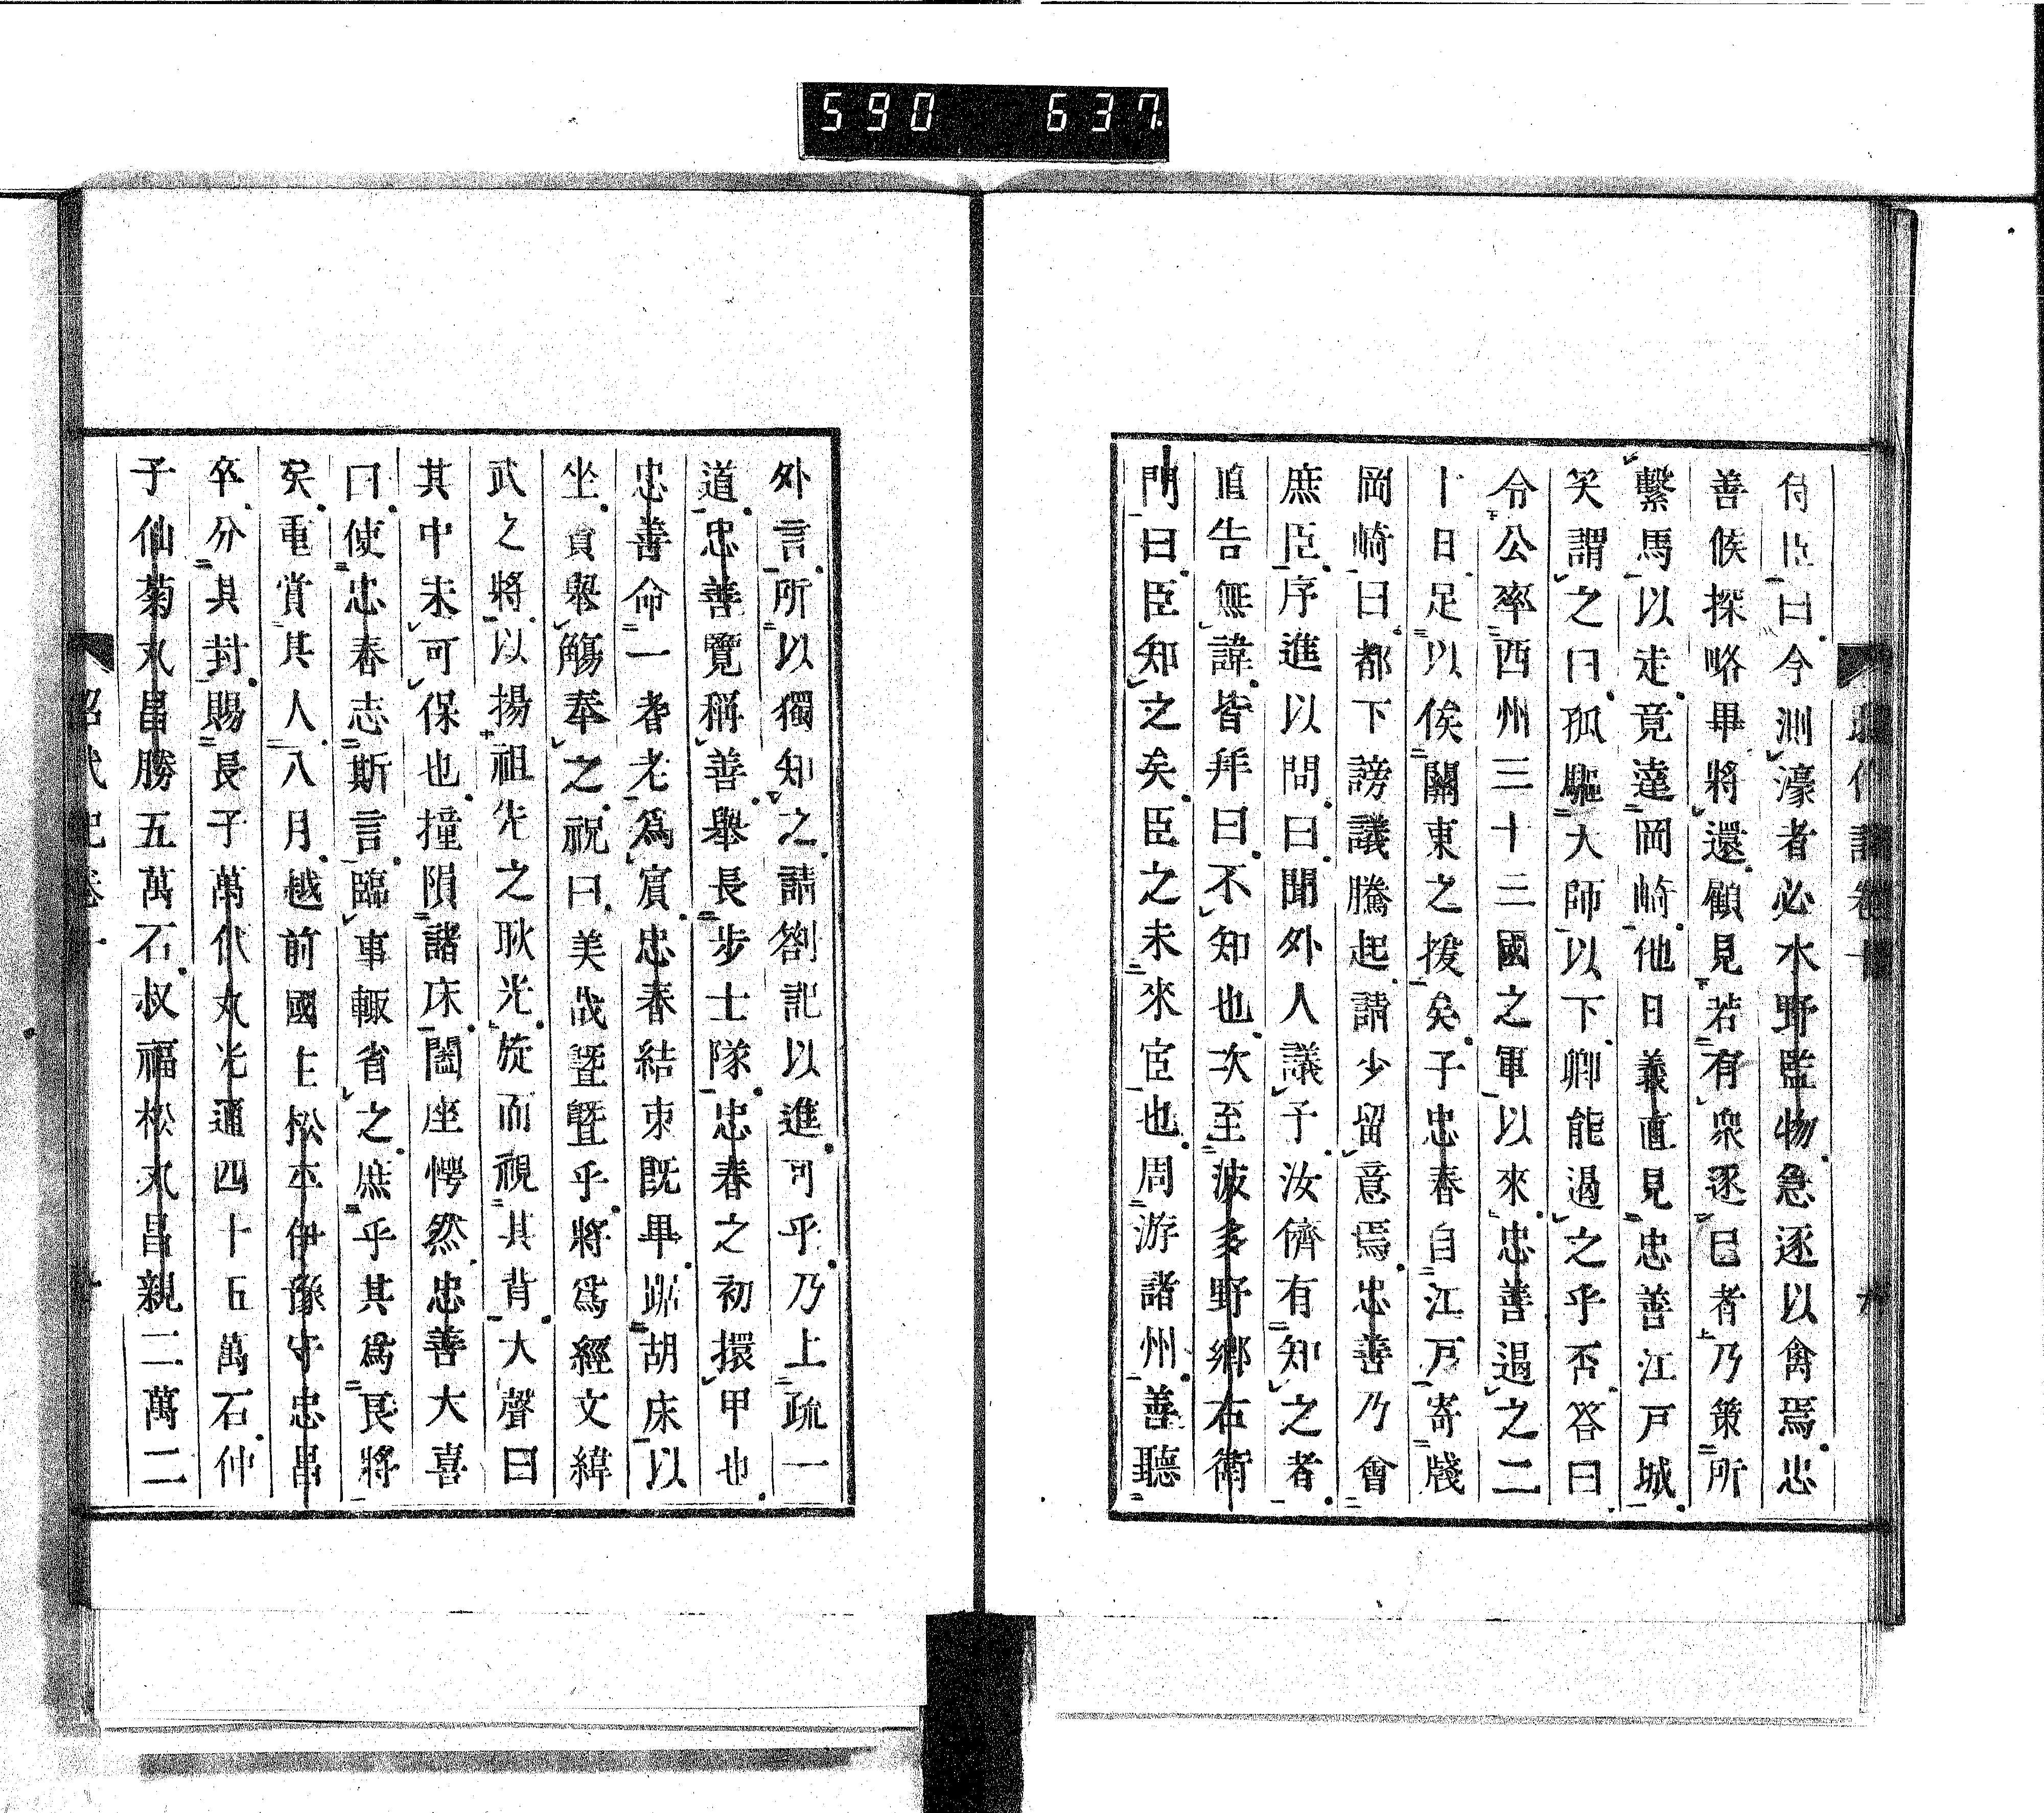 590 637
侍臣曰今測濠者必水野監物急逐以禽焉忠
善候探略畢將還顧見若有衆逐己者乃策所
繫馬以走竟達岡崎他日義直見忠善江戸城
笑謂之曰孤驅大師以下卿能遏之乎否答曰
令公率西州三十三國之軍以來忠善遏之二
十日足以俟關東之援矣子忠春自江戸寄牋
岡崎曰都下謗議騰起請少留意焉忠善乃會
庶臣序進以問曰聞外人議予汝儕有知之者
直告無諱皆拜曰不知也次至波多野郷右衛
門曰臣知之矣臣之未來宦也周游諸州善聽
外言所以獨知之請劄記以進可乎乃上疏一
道忠善覽稱善舉長步士隊忠春之初擐甲也
忠善命一耆老爲賓忠春結束既畢踞胡床以
坐賓舉觴奉之祝曰美哉曁曁乎將爲經文緯
武之將以揚祖先之耿光旋而視其背大聲曰
其中未可保也撞隕諸床闔座愕然忠善大喜
曰使忠春志斯言臨事輙省之庶乎其爲良將
矣重賞其人八月越前國主松平伊豫守忠昌
卒分其封賜長子萬代丸光通四十五萬石仲
子仙菊丸昌勝五萬石叔福松丸昌親二萬二
昭武記卷十